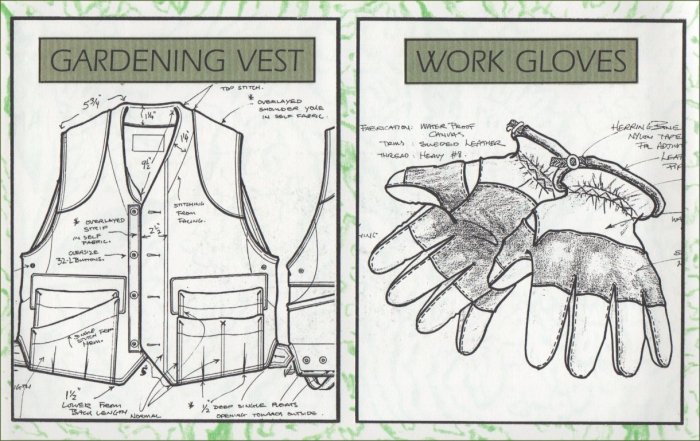 GARDENING VEST
5 3/4"
TOP STITCH.
1 1/8"
1 1/8"
* OVERLAYED
SHOULDER YOKE
IN SELF FABRIC.
9 1/2"
STITCHING
FROM
FACING.
* OVERLAYED
STRIP
IN SELF
FABRIC.
2 1/2"
OVERSIZE
32-L BUTTONS.
SINGLE
HEM.
1 1/2"
LOWER FROM
BACK LENGTH
NORMAL
* 1/2" DEEP SINGLE PLEATS
OPENING TOWARDS OUTSIDE.
WORK GLOVES
FABRICATION: WATER PROOF
CANVAS.
TRIMS: SUEDED LEATHER
THREAD: HEAVY #8.
HERRINGBONE
NYLON TAPE